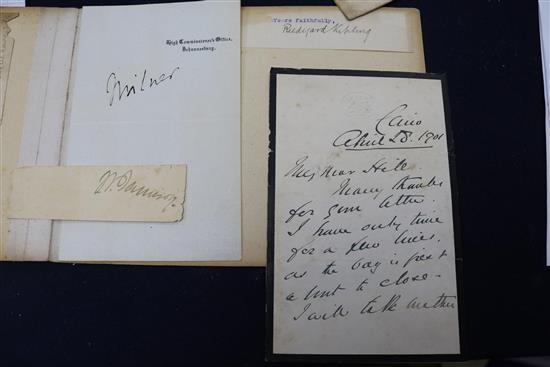 High Commissioner's Office,
Johannesburg.
Milner
Yours faithfully,
Rudyard Kipling
Cairo
April 28. 1901
My Dear Hill.
Many thanks
for your letter
I have only time
for a few lines.
as the bag is just
about to close -
I will take another